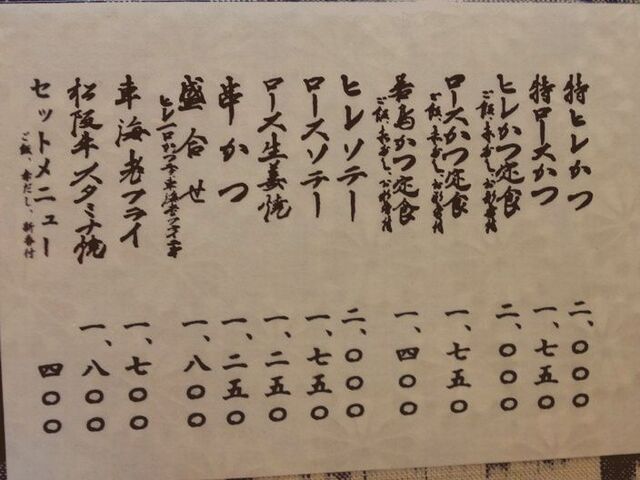 特ヒレかつ 二、〇〇〇
特ロースかつ 一、七五〇
ヒレかつ定食 二、〇〇〇
ご飯、赤だし、お新香付
ロースかつ定食 一、七五〇
ご飯、赤だし、お新香付
若鳥かつ定食 一、四〇〇
ご飯、赤だし、お新香付
ヒレソテー 二、〇〇〇
ロースソテー 一、七五〇
ロース生姜焼 一、二五〇
串かつ 一、二五〇
盛合せ 一、八〇〇
ヒレ一口かつ
車海老フライ 一、七〇〇
松阪牛スタミナ焼 一、八〇〇
セットメニュー 四〇〇
ご飯、赤だし、新香付